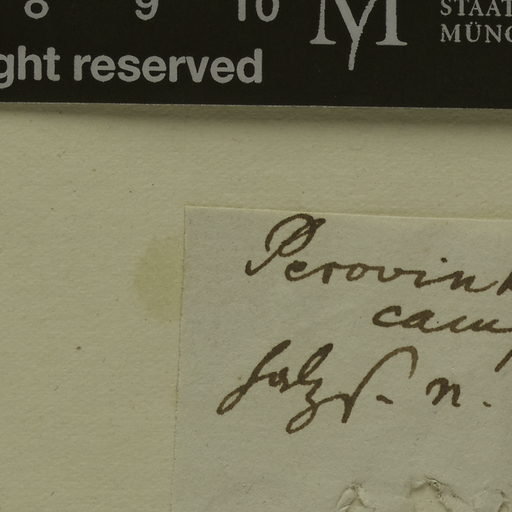 8 9 10
M STAAT
MÜNC
ght reserved
Perovin
cam
Salzs. n.